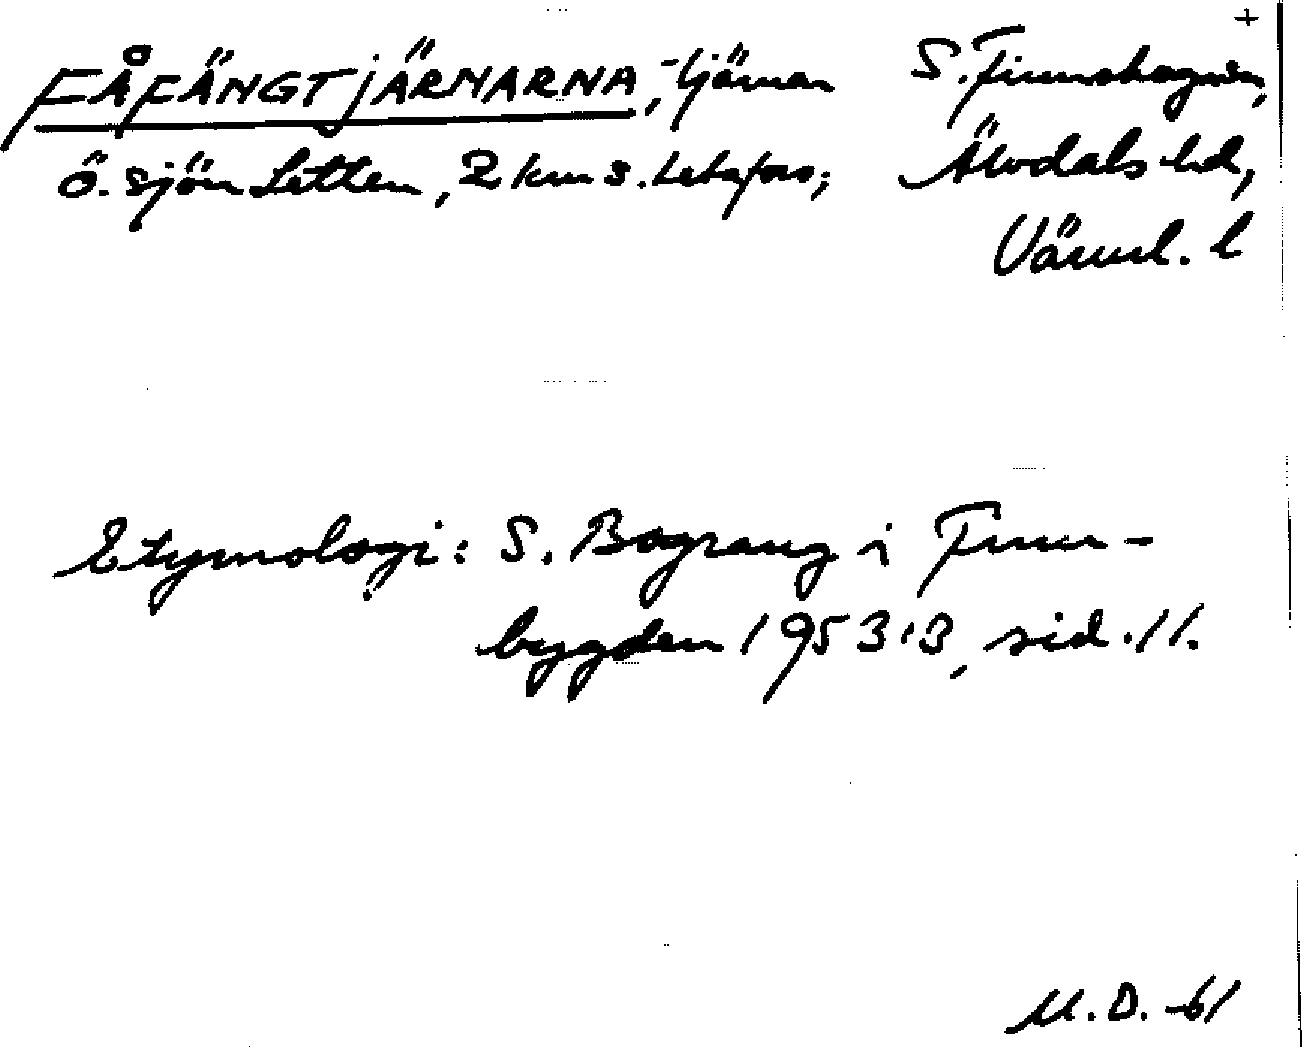 +
FÅFÄNGTJÄRNARNA, -tjärnen S. Finnskoga sn,
ö. sjön Letten, 2 km s. Letafors; Älvdals hd,
Värml. l
Etymologi: S. Bograng i Finn-
bygden 1953:3, sid. 11.
M.D. -61